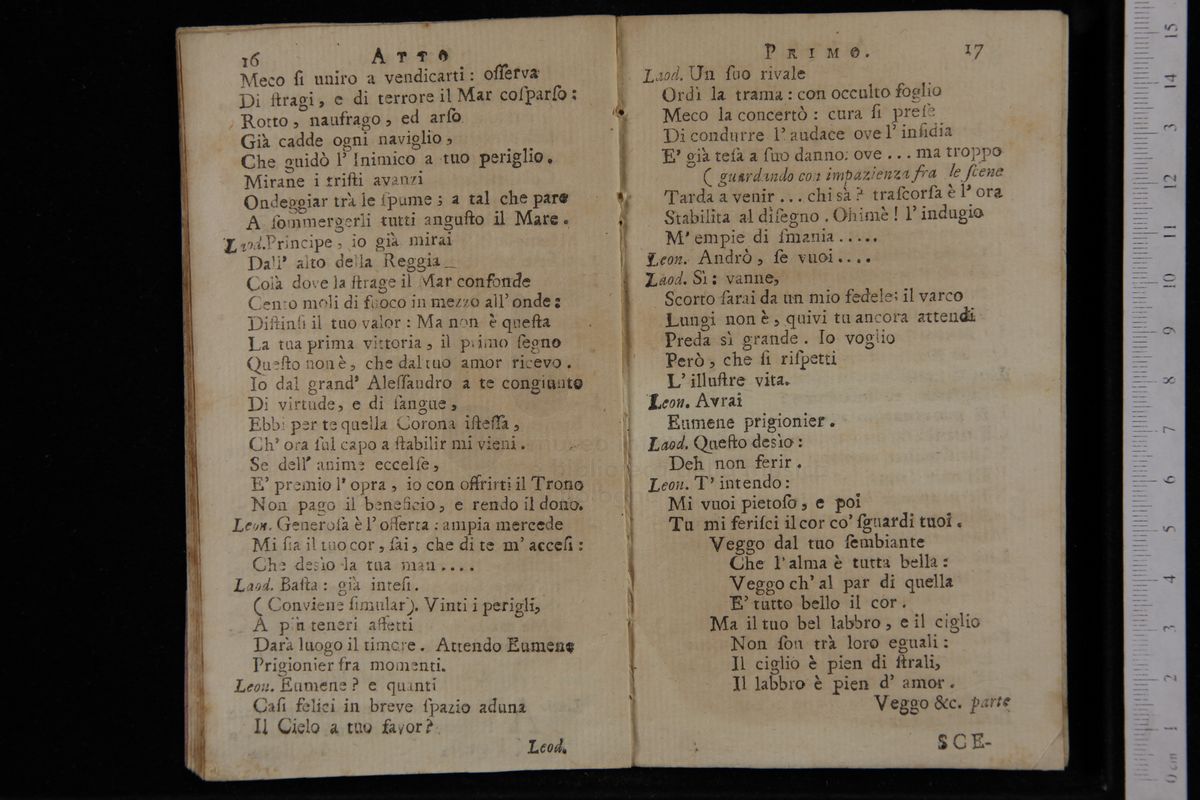 16 ATTO
Meco ſi uniro a vendicarti: oſſerva
Di ſtragi, e di terrore il Mar coſparſo:
Rotto, naufrago, ed arſo
Già cadde ogni naviglio,
Che guidò l' Inimico a tuo periglio.
Mirane i triſti avanzi
Ondeggiar trà le ſpume; a tal che pare
A ſommergerli tutti anguſto il Mare.
Laod. Principe, io già mirai
Dall' alto della Reggia
Colà dove la ſtrage il Mar confonde
Cento moli di fuoco in mezzo all' onde:
Diſtinſi il tuo valor: Ma non è queſta
La tua prima vittoria, il primo ſegno
Queſto non è, che dal tuo amor ricevo.
Io dal grand' Aleſſandro a te congiunto
Di virtude, e di ſangue,
Ebbi per te quella Corona iſteſſa,
Ch' ora ſul capo a ſtabilir mi vieni.
Se dell' anime eccelſe,
E' premio l' opra, io con offrirti il Trono
Non pago il beneficio, e rendo il dono.
Leon. Generoſa è l' offerta: ampia mercede
Mi ſia il tuo cor, ſai, che di te m' acceſi:
Che desìo la tua man....
Laod. Baſta: già inteſi.
( Conviene ſimular). Vinti i perigli,
A più teneri affetti
Darà luogo il timore. Attendo Eumene
Prigionier fra momenti.
Leon. Eumene? e quanti
Caſi felici in breve ſpazio aduna
Il Cielo a tuo favor?
Leod.
PRIMO. 17
Laod. Un ſuo rivale
Ordì la trama: con occulto foglio
Meco la concertò: cura ſi preſe
Di condurre l' audace ove l' inſidia
E' già teſa a ſuo danno: ove ... ma troppo
( guardando con impazienza fra le ſcene
Tarda a venir ... chi sà? traſcorſa è l' ora
Stabilita al diſegno. Ohimè! l' indugio
M' empie di ſmania.....
Leon. Andrò, ſe vuoi....
Laod. Sì: vanne,
Scorto ſarai da un mio fedele; il varco
Lungi non è, quivi tu ancora attendi
Preda sì grande. Io voglio
Però, che ſi riſpetti
L' illuſtre vita.
Leon. Avrai
Eumene prigionier.
Laod. Queſto desìo:
Deh non ferir.
Leon. T' intendo:
Mi vuoi pietoſo, e poi
Tu mi feriſci il cor co' ſguardi tuoi.
Veggo dal tuo ſembiante
Che l' alma è tutta bella:
Veggo ch' al par di quella
E' tutto bello il cor.
Ma il tuo bel labbro, e il ciglio
Non ſon trà loro eguali:
Il ciglio è pien di ſtrali,
Il labbro è pien d' amor.
Veggo &c. parte
SCE-
0 cm 1 2 3 4 5 6 7 8 9 10 11 12 13 14 15